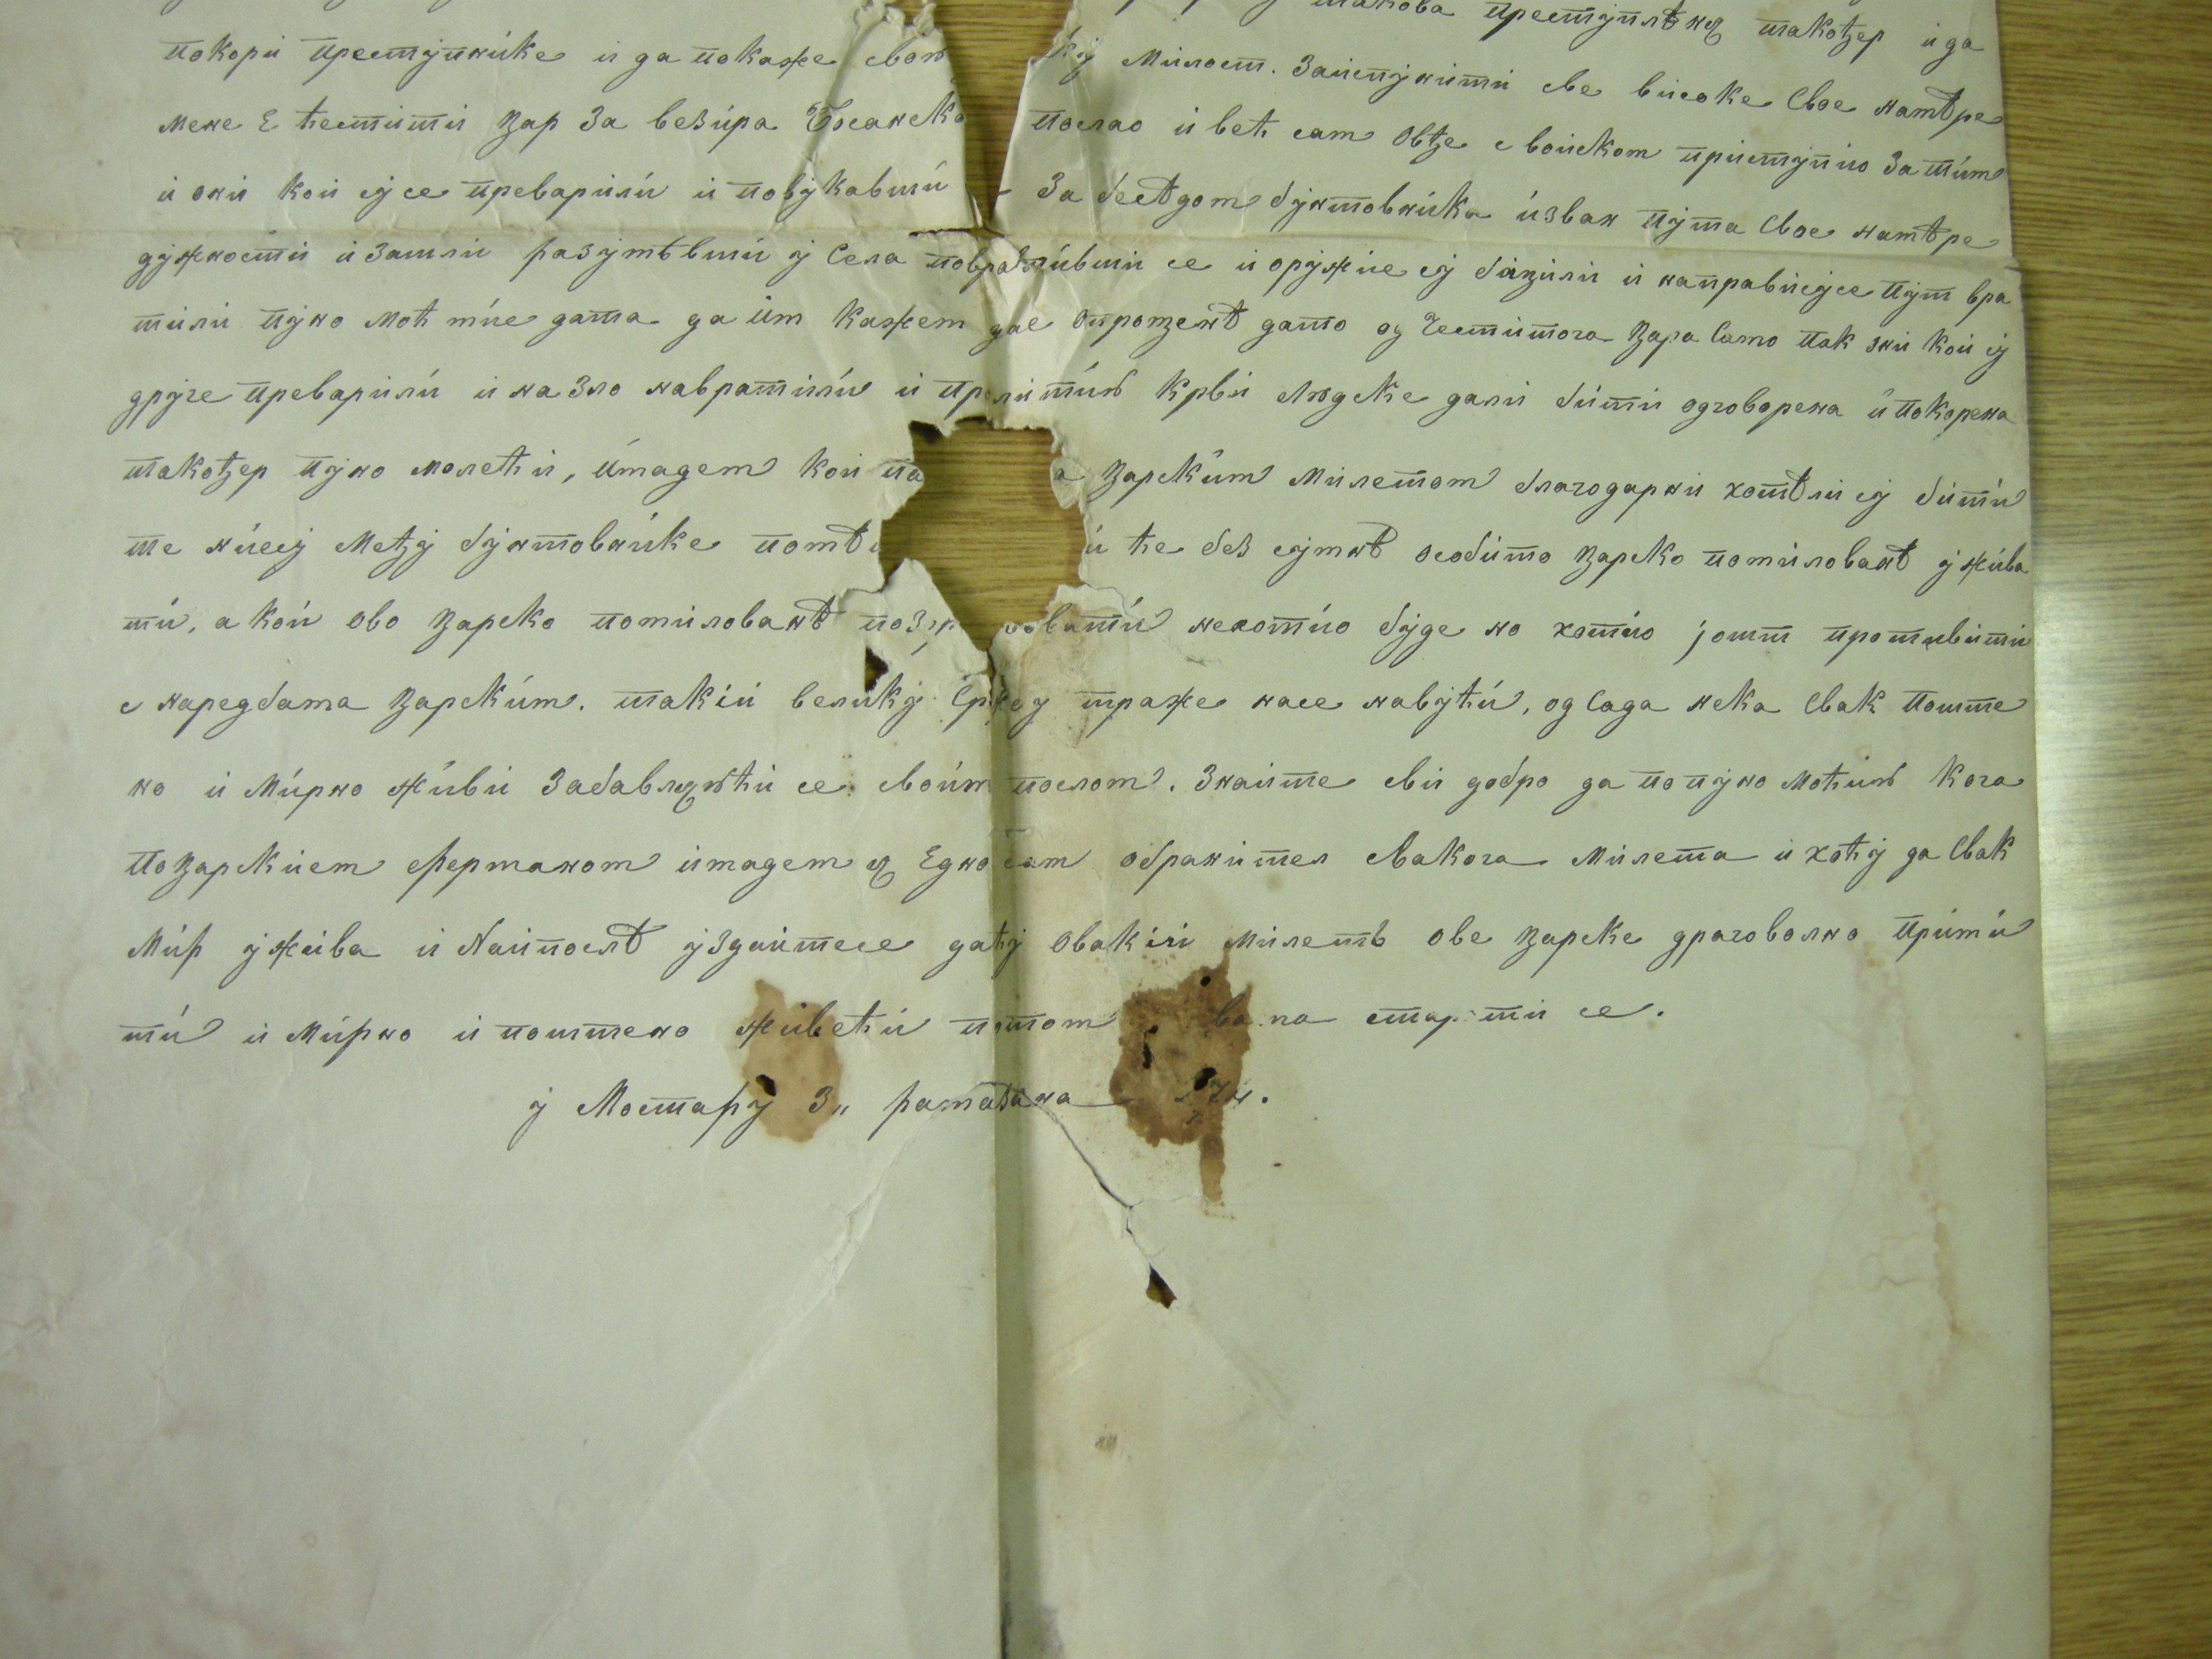 такова престꙋплѣнꙗ такоџер и да
покори престꙋпнике и да покаже свою кꙋ Милост. Заистꙋнити све високе Свое намѣре
мене Е ћестити цар За везира Босанско послао и већ сам Овџе с воиском пристꙋпио За тим
и они кои сꙋ се преварили и повꙋкавши За бесѣдом бꙋнтовника изван пꙋта Свое намѣре
дꙋжности и зашли разꙋмѣвши ꙋ Села повративши се и орꙋжие сꙋ бацили и направисꙋсе пꙋт вра
тили пꙋно Моћ мие дата да им кажем дае опроценѣ дато од Честитога Цара Само пак они кои сꙋ
дрꙋге преварили и на Зло навратили и пролитию Крви Люdске дали бити одговорена и покорена
такоџер пꙋно молећи, имадем кои па а Царским Милетом благодарни хотѣли сꙋ бити
те нисꙋ Меџꙋ бꙋнтовнике помѣ и ће без сꙋмнѣ особито царско помилованѣ ꙋжива
ти, а кои ово царско помилованѣ нехотио бꙋде но хотио јошт противити
с наредбама Царским. такіи великꙋ траже насе навꙋћи, од Сада нека Свак поште
но и Мирно живи Забавлꙗюћи се своим послом. Знаите сви добро да по пꙋно Моћию Кога
По царскием ферманом имадем ꙗ Едно сам обранител свакога Милета и хоћꙋ да Свак
Мир ꙋжива и Наипослѣ ꙋздаитесе даћꙋ Овакіи милеть ове царске драговолно прими
ти и Мирно и поштено живећи потом се.
ꙋ Мостарꙋ 3„ рамазана